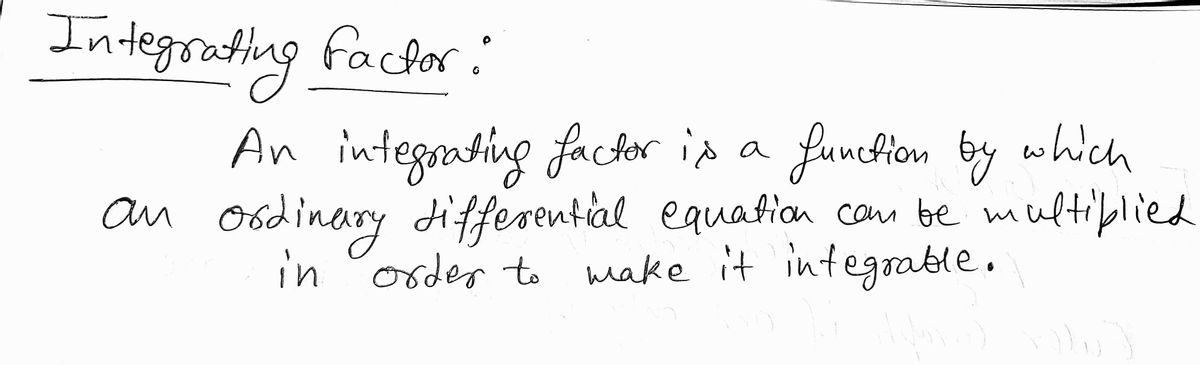 Integrating factor:
An integrating factor is a function by which
an ordinary differential equation can be multiplied
in order to make it integrable.